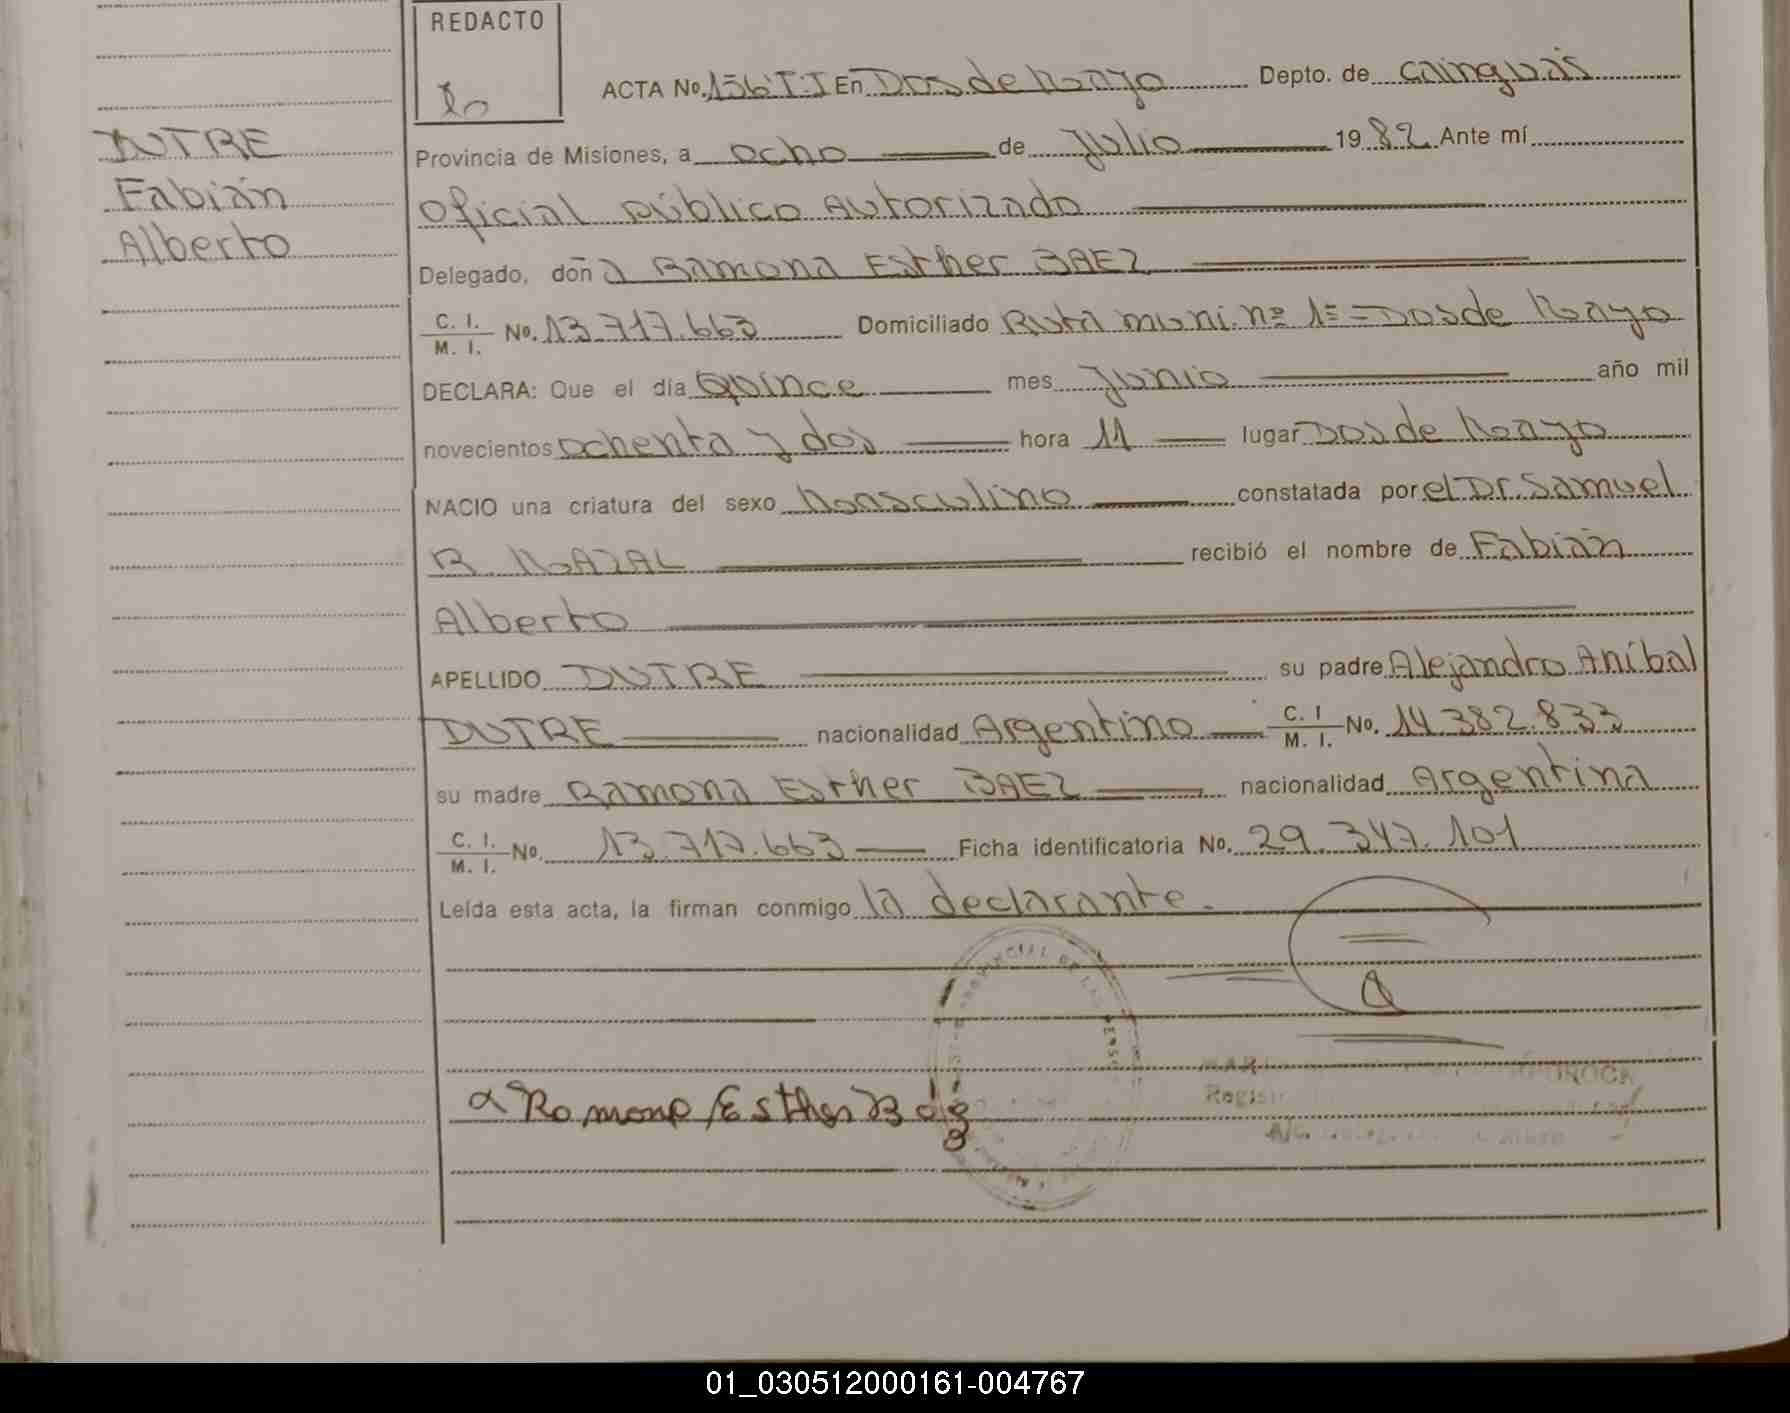 REDACTO
ACTA No. 156 T.I En Dos de Mayo Depto. de Cainguás
DUTRE
Fabián
Alberto
Provincia de Misiones, a ocho de Julio 1982 Ante mí
Oficial Público Autorizado
Delegado, doña Ramona Esther BAEZ
C. I. M. I. No. 13.717.663 Domiciliado Ruta muni. nº 1= Dos de Mayo
DECLARA: Que el día Quince mes Junio año mil
novecientos ochenta y dos hora 11 lugar Dos de Mayo
NACIO una criatura del sexo Masculino constatada por el Dr. Samuel
R. MAZAL recibió el nombre de Fabián
Alberto
APELLIDO DUTRE su padre Alejandro Aníbal
DUTRE nacionalidad Argentino C. I M. I. No. 14.382.833
su madre Ramona Esther BAEZ nacionalidad Argentina
C. I. M. I. No. 13.717.663 Ficha identificatoria No. 29.347.101
Leída esta acta, la firman conmigo la declarante.
Ramona Esther Baez
01_030512000161-004767